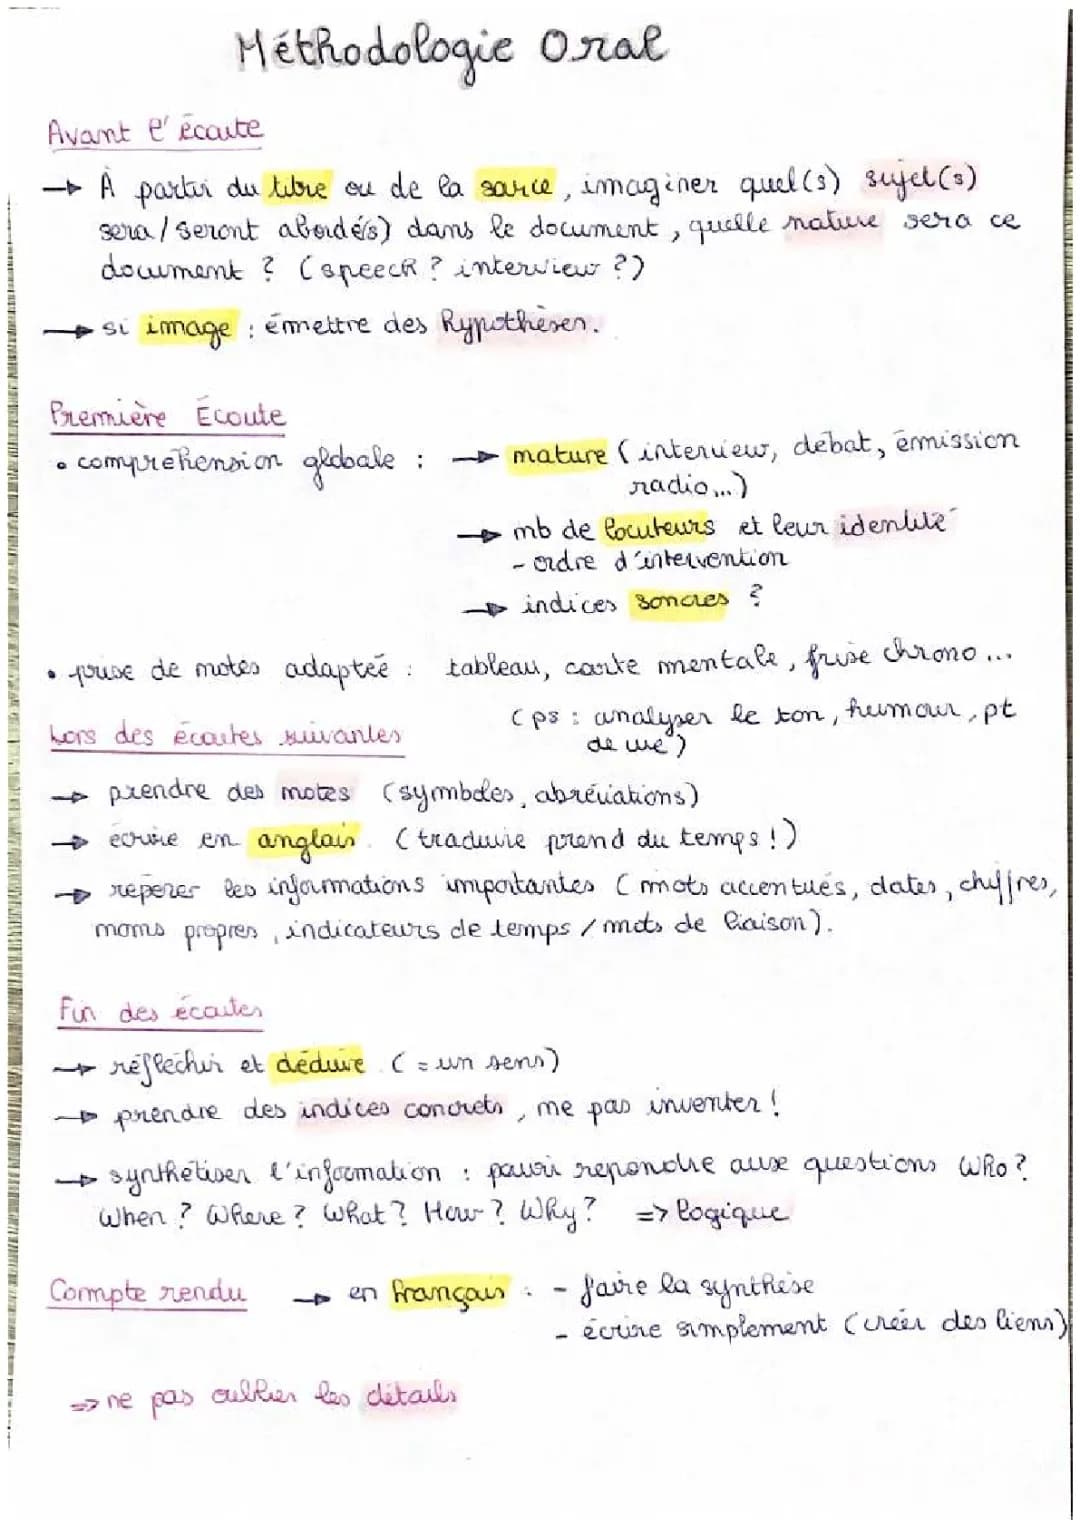 Méthodologie Oral
Avant l'écoute
→ À partir du titre ou de la source, imaginer quel(s) sujet(s)
sera/seront abordé(s) dans le document, quelle nature sera ce
document ? (speech ? interview ?)
→ si image : émettre des hypothèses.
Première Écoute
• compréhension globale : → nature (interview, débat, émission
radio...)
→ nb de locuteurs et leur identité
- ordre d'intervention
→ indices sonores ?
• prise de notes adaptée : tableau, carte mentale, frise chrono...
(ps : analyser le ton, humour, pt
de vue)
Lors des écoutes suivantes
→ prendre des notes (symboles, abréviations)
→ écrire en anglais. (traduire prend du temps !)
→ repérer les informations importantes (mots accentués, dates, chiffres,
noms propres, indicateurs de temps / mots de liaison).
Fin des écoutes
→ réfléchir et déduire. (= un sens)
→ prendre des indices concrets, ne pas inventer !
→ synthétiser l'information : pouvoir repondre aux questions Who ?
When ? Where ? What ? How ? Why ? => logique
Compte rendu → en français : - faire la synthèse
- écrire simplement (créer des liens)
=> ne pas oublier les détails